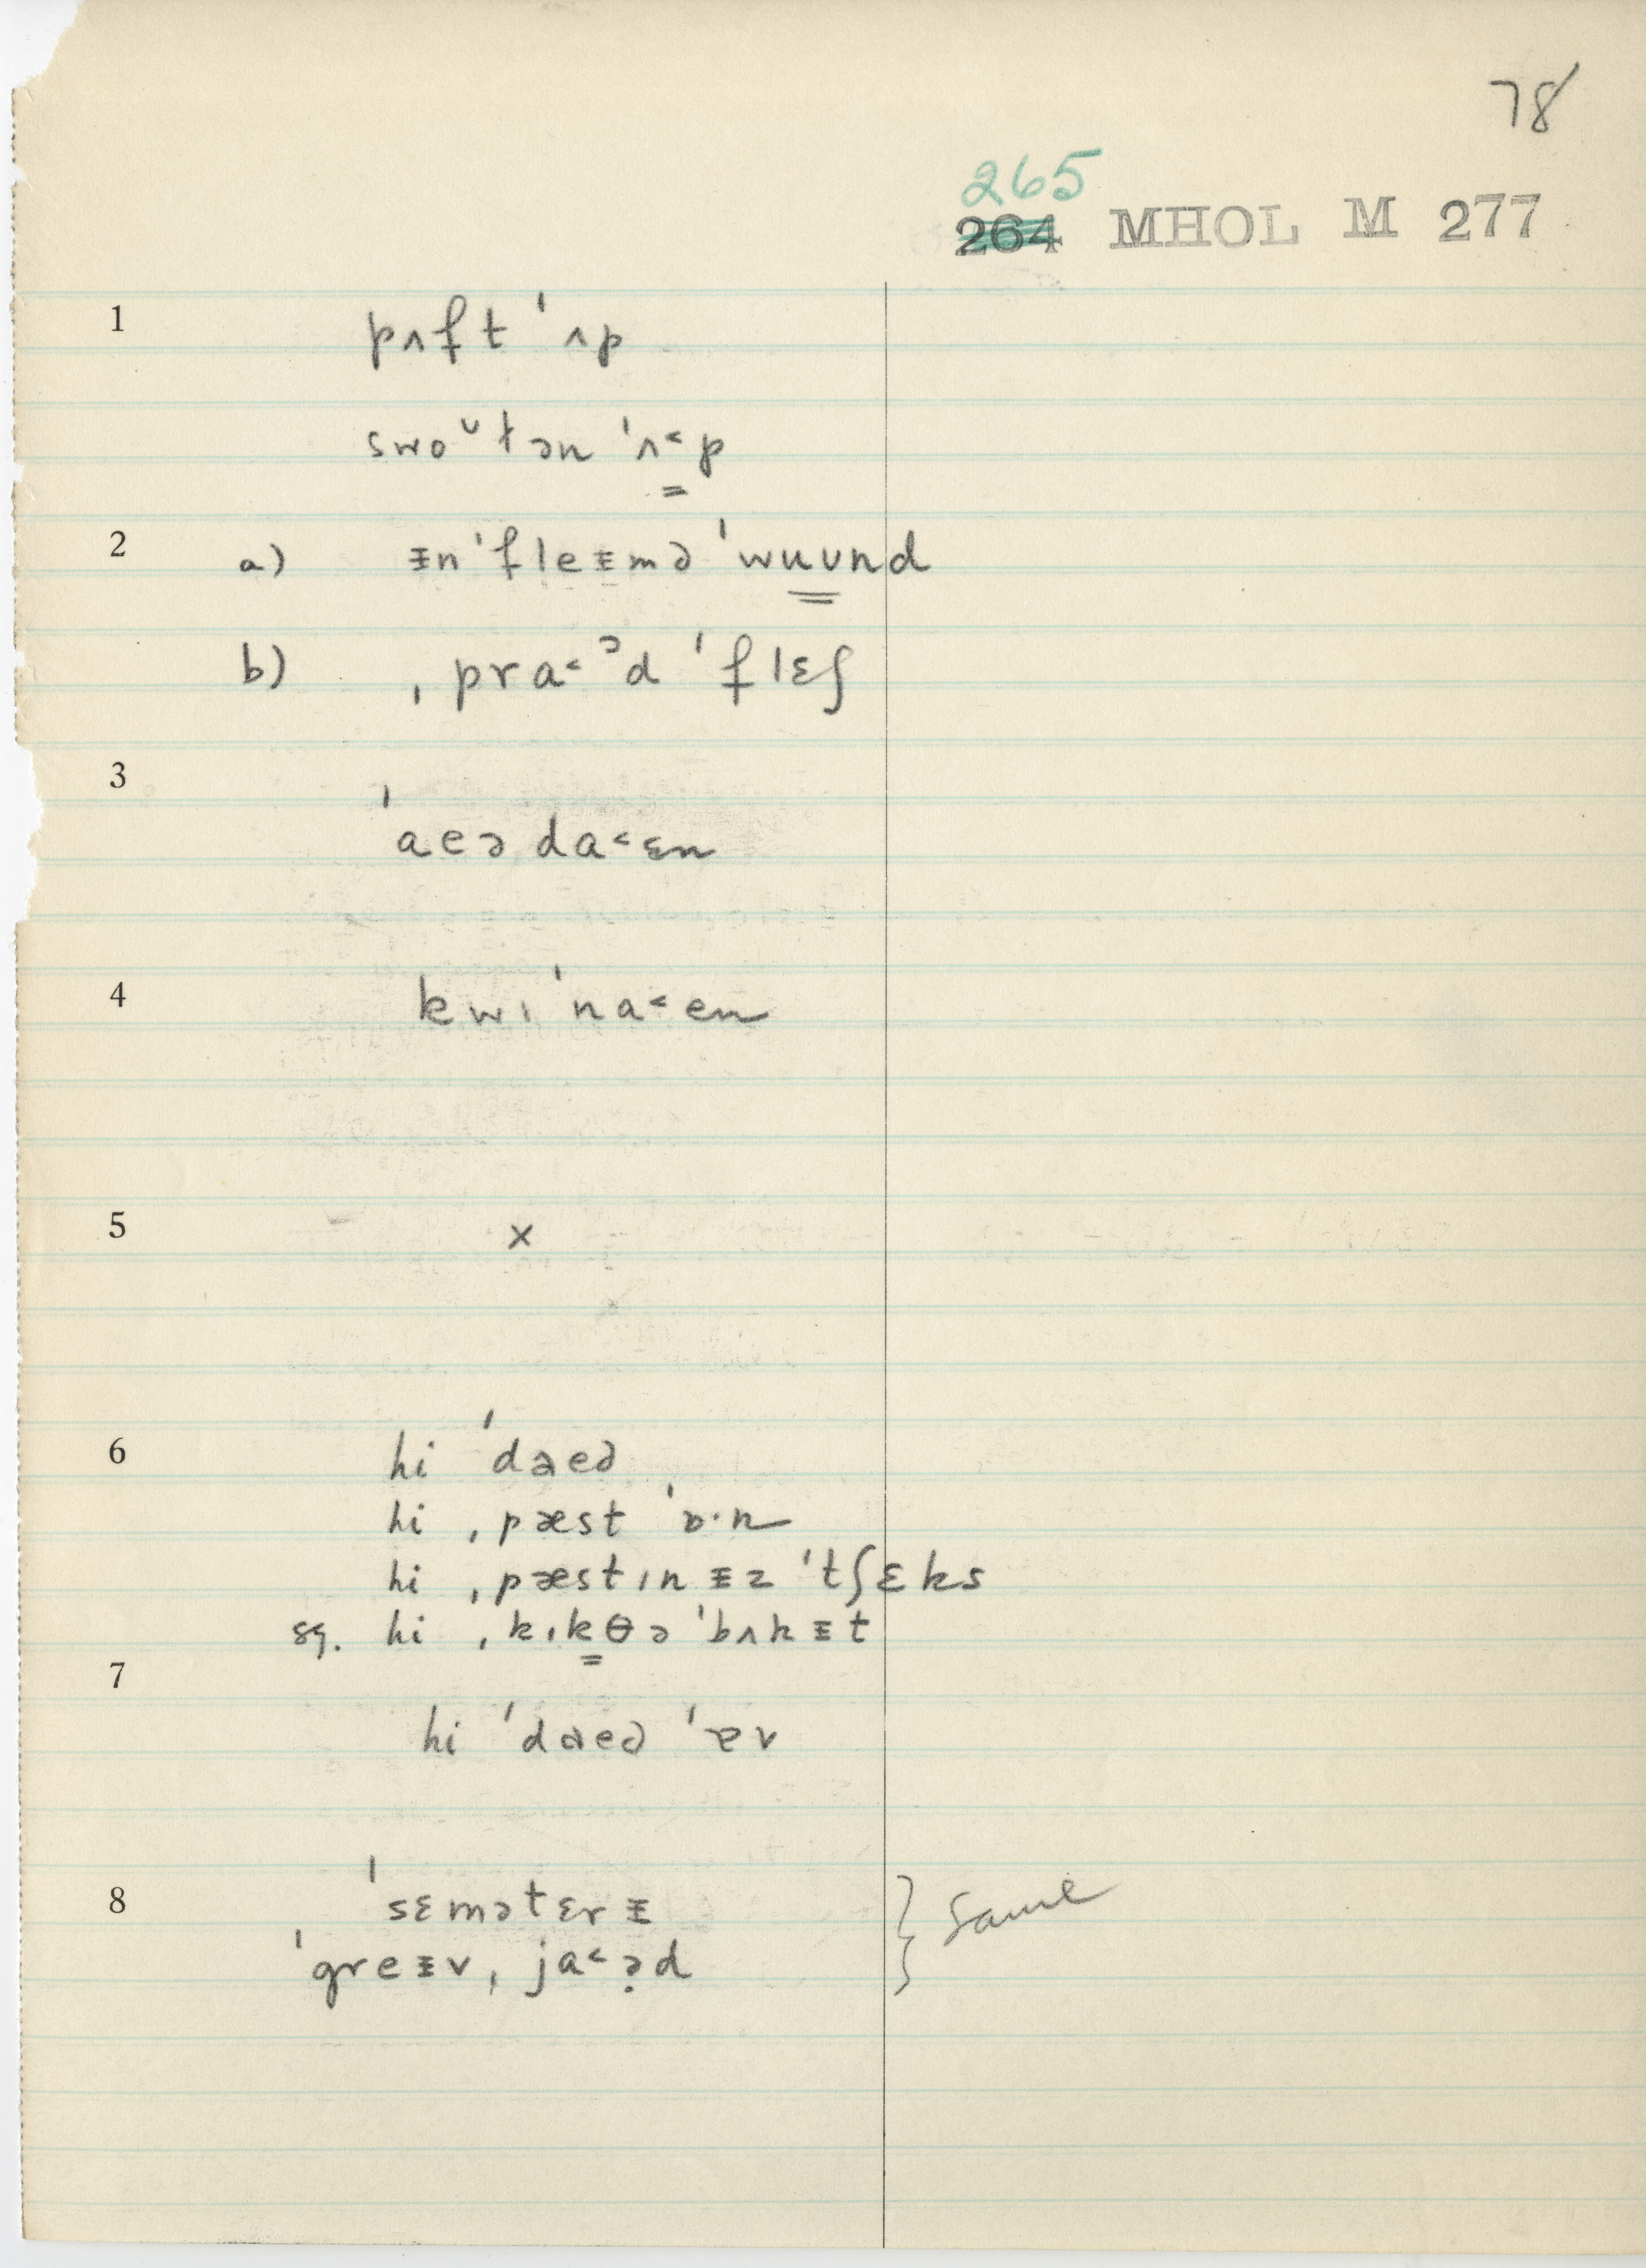 78
265
264 MHOL M 277
1 pʌft ˈʌp
swoᵘtən ˈʌ˂p
2 a) ɪ̵nˈfleɪ̵mə ˈwuʊnd
b) ˌpra˂ᵊd ˈflɛʃ
3 ˈaeəda˂ɛn
4 kwɪˈna˂en
5 x
6 hi ˈdaeə
hi ˌpæst ˈɒ·n
hi ˌpæstɪn ɪ̵z ˈtʃɛks
sq. hi ˌkɪkθə ˈbʌkɪ̵t
7 hi ˈdaeə ˈɐv
8 ˈsɛmətɛrɪ̵
ˈgreɪ̵vˌja˂əd
} same